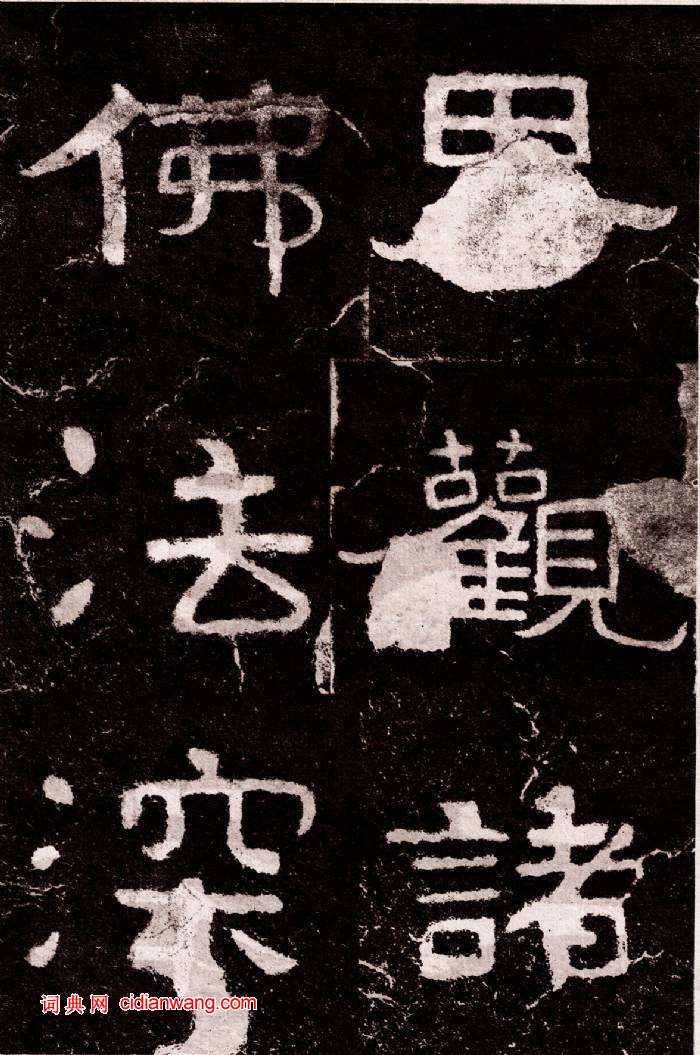 觀諸
佛法深
词典网 cidianwang.com